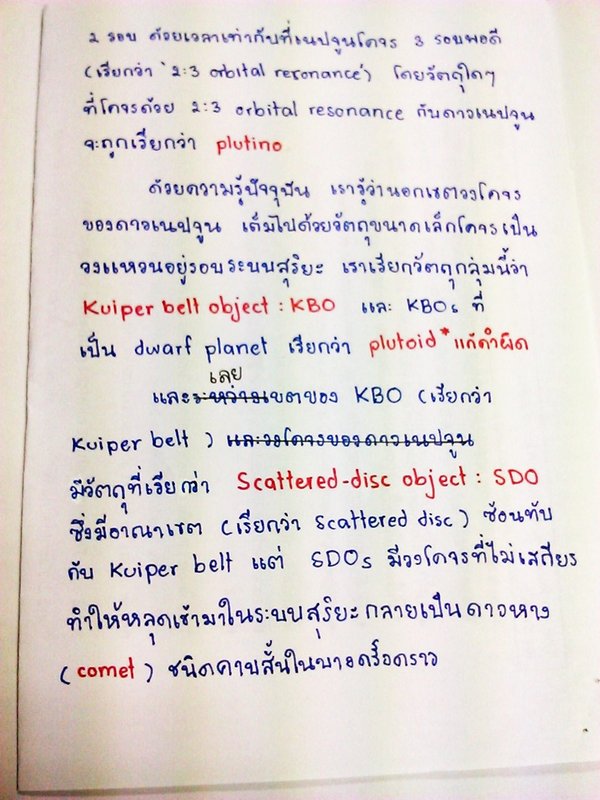 2 รอบ ด้วยเวลาเท่ากับที่เนปจูนโคจร 3 รอบพอดี
(เรียกว่า '2:3 orbital resonance') โดยวัตถุใดๆ
ที่โคจรด้วย 2:3 orbital resonance กับดาวเนปจูน
จะถูกเรียกว่า plutino
ด้วยความรู้ปัจจุบัน เรารู้ว่านอกเขตวงโคจร
ของดาวเนปจูน เต็มไปด้วยวัตถุขนาดเล็กโคจรเป็น
วงแหวนอยู่รอบระบบสุริยะ เราเรียกวัตถุกลุ่มนี้ว่า
Kuiper belt object : KBO และ KBOs ที่
เป็น dwarf planet เรียกว่า plutoid *แก้คำผิด
เลย
และระหว่างเขตของ KBO (เรียกว่า
Kuiper belt ) และวงโคจรของดาวเนปจูน
มีวัตถุที่เรียกว่า Scattered-disc object : SDO
ซึ่งมีอาณาเขต (เรียกว่า scattered disc ) ซ้อนทับ
กับ Kuiper belt แต่ SDOs มีวงโคจรที่ไม่เสถียร
ทำให้หลุดเข้ามาในระบบสุริยะ กลายเป็น ดาวหาง
(comet) ชนิดคาบสั้นในบางครั้งคราว